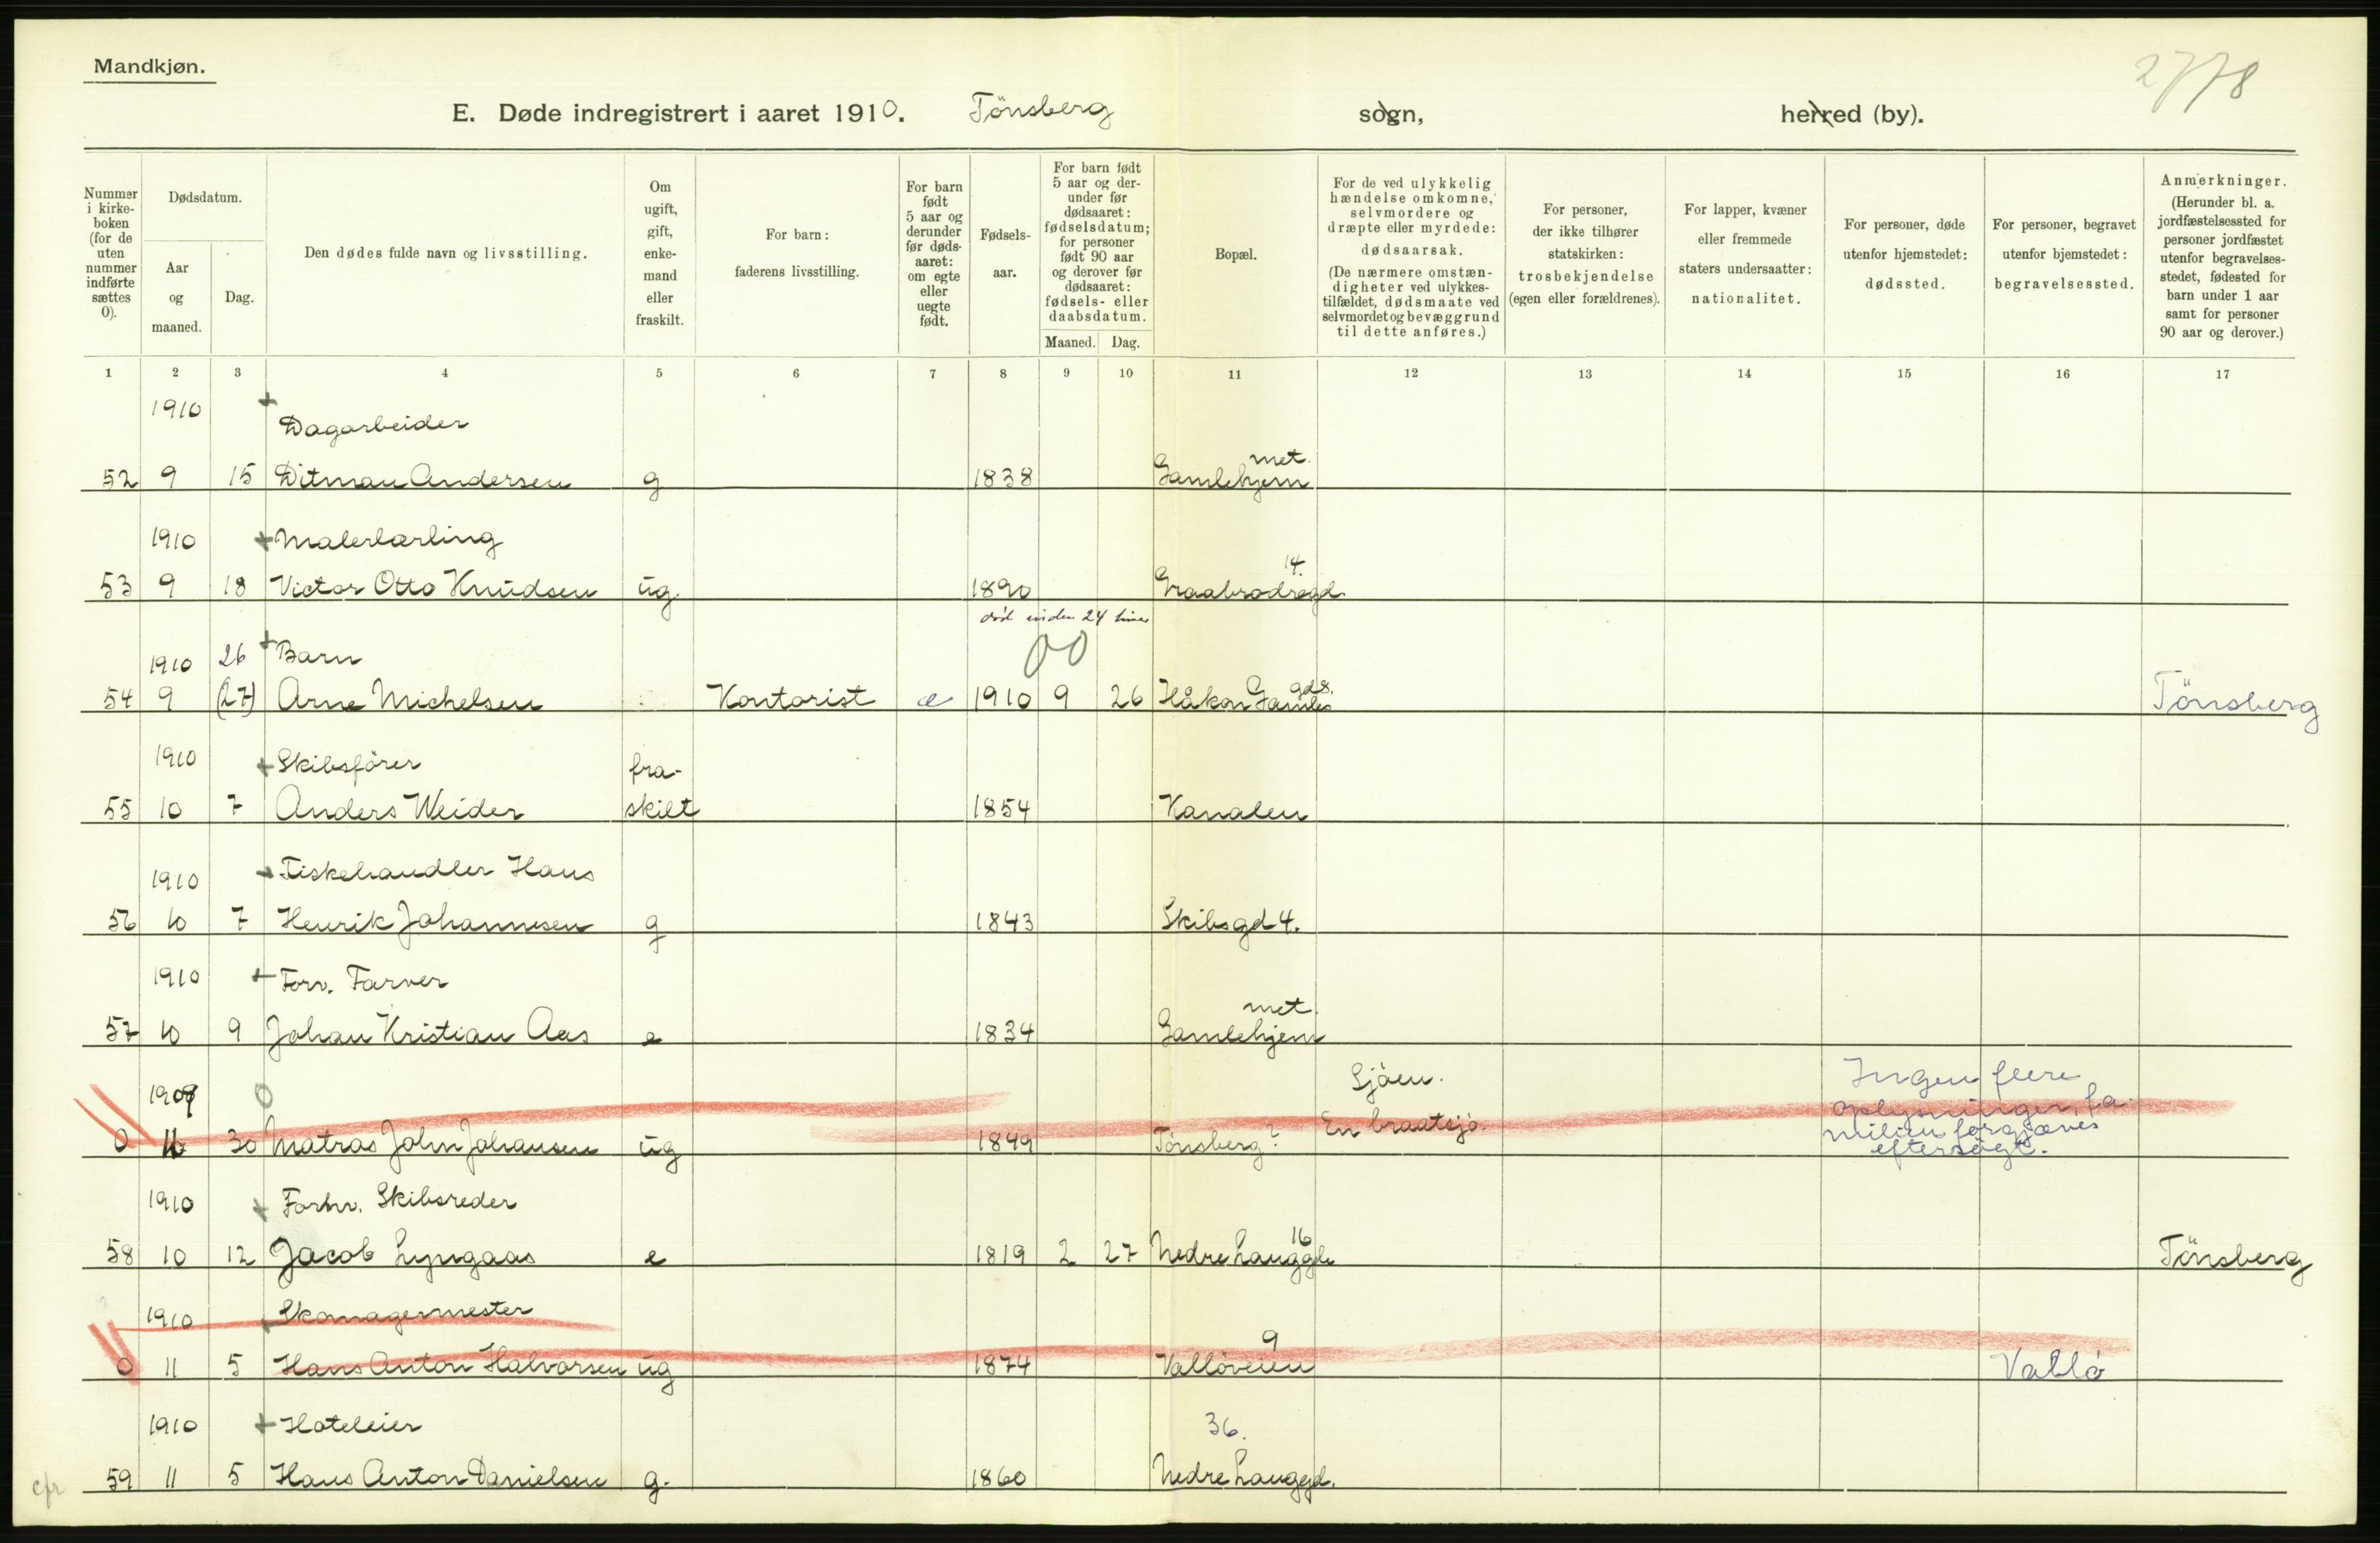 Mandkjøn.
2778
E. Døde indregistrert i aaret 1910. Tönsberg sogn, herred (by).
Nummer i kirkeboken (for de uten nummer indførte sættes 0).
Dødsdatum.
Aar og maaned.
Dag.
Den dødes fulde navn og livsstilling.
Om ugift, gift, enkemand eller fraskilt.
For barn: faderens livsstilling.
For barn født 5 aar og derunder før dødsaaret: om egte eller uegte født.
Fødselsaar.
For barn født 5 aar og derunder før dødsaaret: fødselsdatum; for personer født 90 aar og derover før dødsaaret: fødsels- eller daabsdatum.
Maaned. Dag.
Bopæl.
For de ved ulykkelig hændelse omkomne, selvmordere og dræpte eller myrdede: dødsaarsak. (De nærmere omstændigheter ved ulykkestilfældet, dødsmaate ved selvmordet og bevæggrund til dette anføres.)
For personer, der ikke tilhører statskirken: trosbekjendelse (egen eller forældrenes).
For lapper, kvæner eller fremmede staters undersaatter: nationalitet.
For personer, døde utenfor hjemstedet: dødssted.
For personer, begravet utenfor hjemstedet: begravelsessted.
Anmerkninger. (Herunder bl. a. jordfæstelsessted for personer jordfæstet utenfor begravelsesstedet, fødested for barn under 1 aar samt for personer 90 aar og derover.)
1 2 3 4 5 6 7 8 9 10 11 12 13 14 15 16 17
1910 + Dagarbeider
met.
52 9 15 Ditman Andersen g 1838 Gamlehjem
1910 + Malerlærling
14.
53 9 18 Victor Otto Knudsen ug. 1890 Graabrødregd.
död inden 24 timer
1910 26 + Barn 00
gd 8.
54 9 (27) Arne Michelsen Kontorist e 1910 9 26 Håkon Gamles Tönsberg
1910 + Skibsförer fra-
55 10 7 Anders Weider skilt 1854 Kanalen
1910 + Fiskehandler Hans
56 10 7 Henrik Johannesen g 1843 Skibsgd 4.
1910 + Forv. Farver
met.
57 10 9 Johan Kristian Aas e 1834 Gamlehjem
1909 0 Sjöen. Ingen flere
oplysninger, fa-
0 30 Matros John Johansen ug 1849 Tönsberg? En braatsjö. milien forgjæves
eftersögt.
1910 + Forhv. Skibsreder
16
58 10 12 Jacob Lyngaas e 1819 2 27 Nedre Langgde Tönsberg
1910 + Skomagermester
9
0 11 5 Hans Anton Halvorsen ug 1874 Vallöveien Vallö
1910 + Hoteleier 36.
cfr 59 11 5 Hans Anton Danielsen g. 1860 Nedre Langgd.